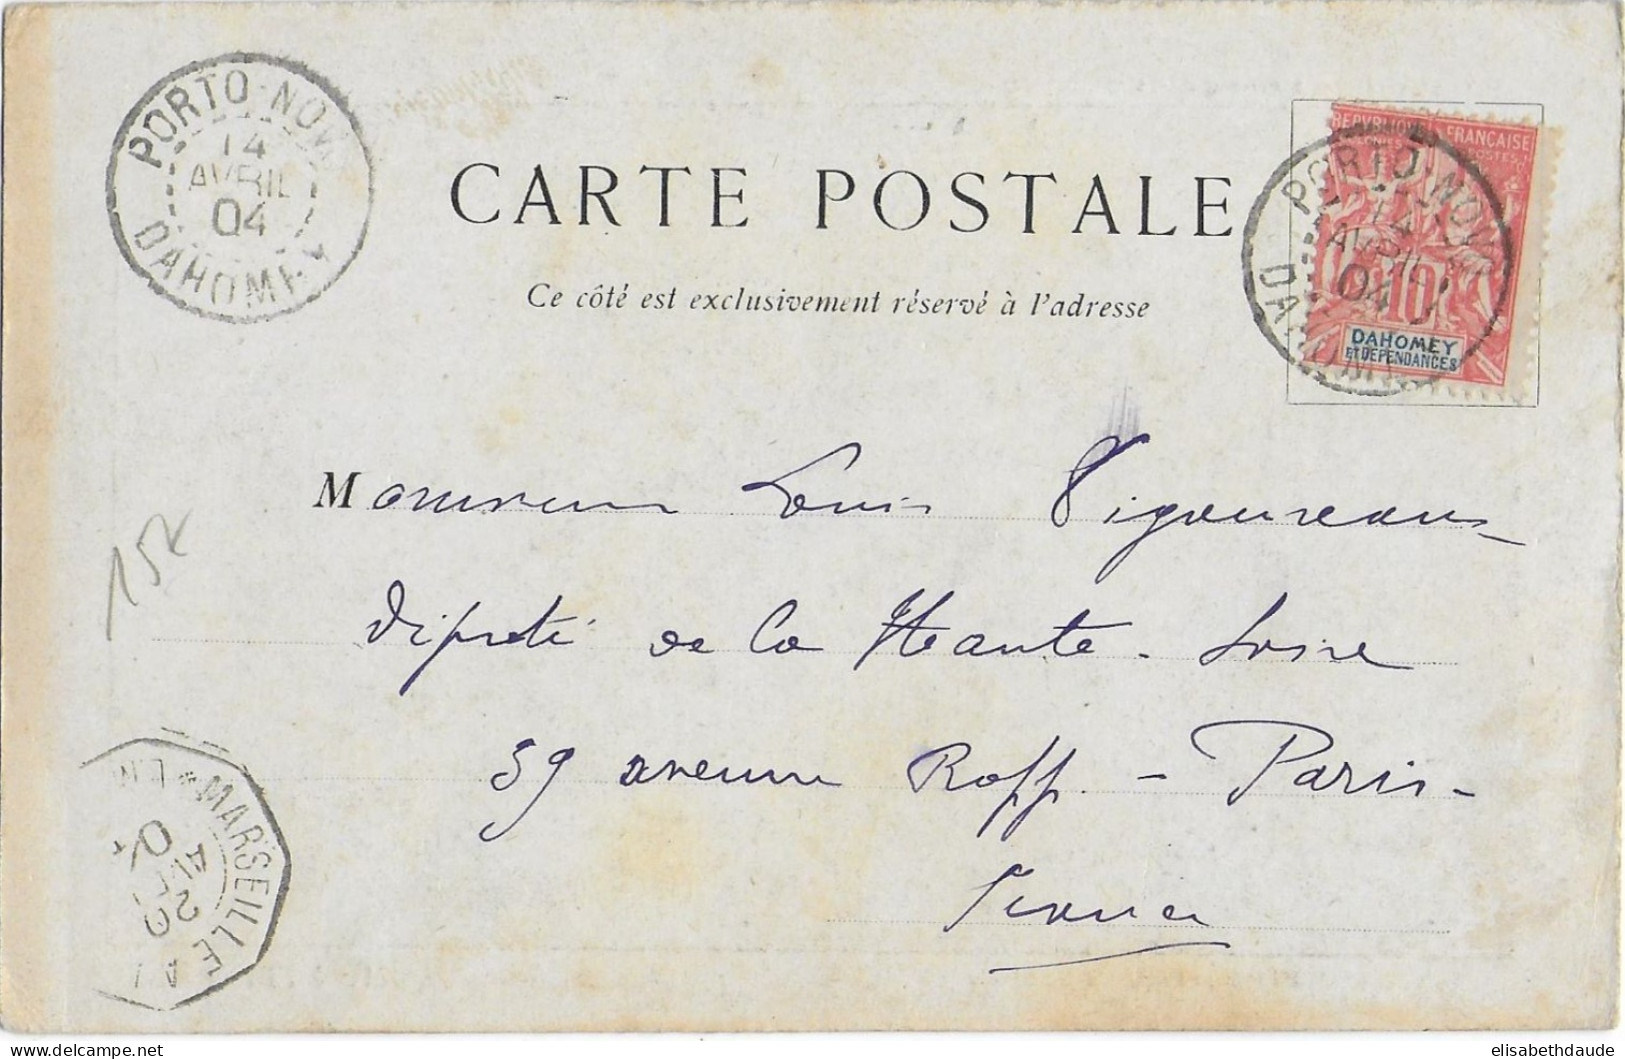 PORTO-NOVO
14
AVRIL
04
DAHOMEY
CARTE POSTALE
Ce côté est exclusivement réservé à l'adresse
REPVBLIQVE FRANÇAISE
COLONIES POSTES
10
DAHOMEY
ET DÉPENDANCES
PORTO-NOVO
14
AVRIL
04
DAHOMEY
Monsieur Louis Vigouroux
Député de la Haute-Loire
39 avenue Rapp. - Paris -
France
MARSEILLE
elisabethdaude